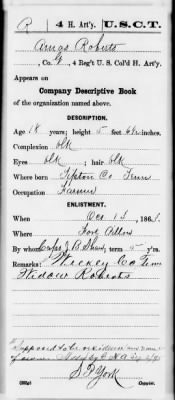 R | 4 H. Art'y. | U.S.C.T.
Roberts
, Co. , 4 Reg't U. S. Col'd H. Art'y.
Appears on
Company Descriptive Book
of the organization named above.
DESCRIPTION.
Age 18 years; height 5 feet 6½ inches.
Complexion blk
Eyes blk ; hair blk
Where born Tipton Co Tenn
Occupation Farmer
ENLISTMENT.
When 186
Where Fort
By whom J B Shaw ; term y'rs.
Remarks: Co Tenn
Widow Roberts
Supposed to be residence and name
of owner
S. P. York
Copyist.